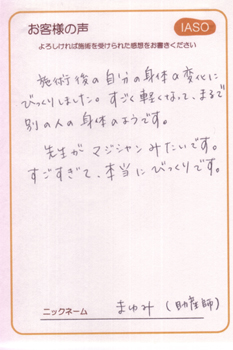 お客様の声
IASO
よろしければ施術を受けられた感想をお書きください
施術後の自分の身体の変化に
びっくりしました。すごく軽くなって、まるで
別の人の身体のようです。
先生がマジシャンみたいです。
すごすぎて、本当にびっくりです。
ニックネーム まゆみ (助産師)